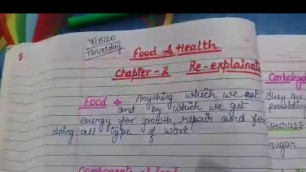 7/8/20
Thursday
Food & Health
Chapter-2 Re-explanation
Food → Anything which we eat
and by which we get
energy for growth, repair and for
doing all type of work
Carbohyd
they are
probabl
sources
sugar
Components of food